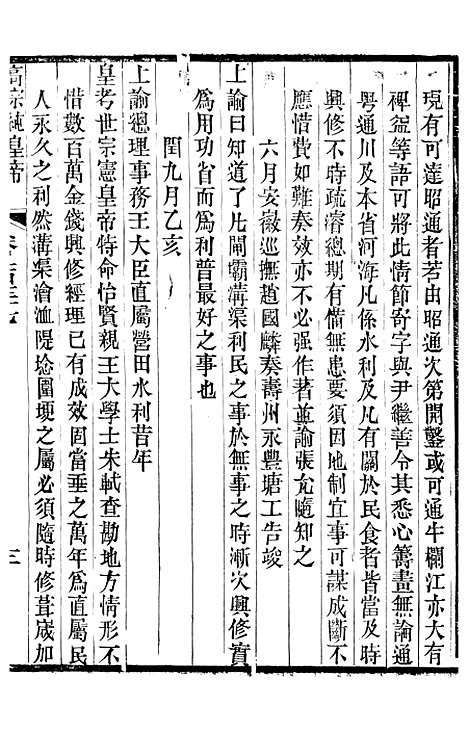 現有可達昭通者若由昭通次第開鑿或可通牛欄江亦大有
裨益等語可將此情節寄字與尹繼善令其悉心籌畫無論通
粵通川及本省河海凡係水利及有關於民食者皆當及時
興修不時疏濬總期有備無患要須因地制宜事可謀成斷不
應惜費如難奏效亦不必強作者並諭張允隨知之
六月安徽巡撫趙國麟奏壽州永豐塘工告竣
上諭曰知道了凡閘霸溝渠利民之事於無事之時漸次興修實
爲用功省而爲利普最好之事也
閏九月乙亥
上諭總理事務王大臣直屬營田水利昔年
皇考世宗憲皇帝特命怡賢親王大學士朱軾查勘地方情形不
惜數百萬金錢興修經理已有成效固當垂之萬年爲直屬民
人永久之利然溝渠澮洫隄埝圍埂之屬必須隨時修葺歲加
高宗純皇帝
三